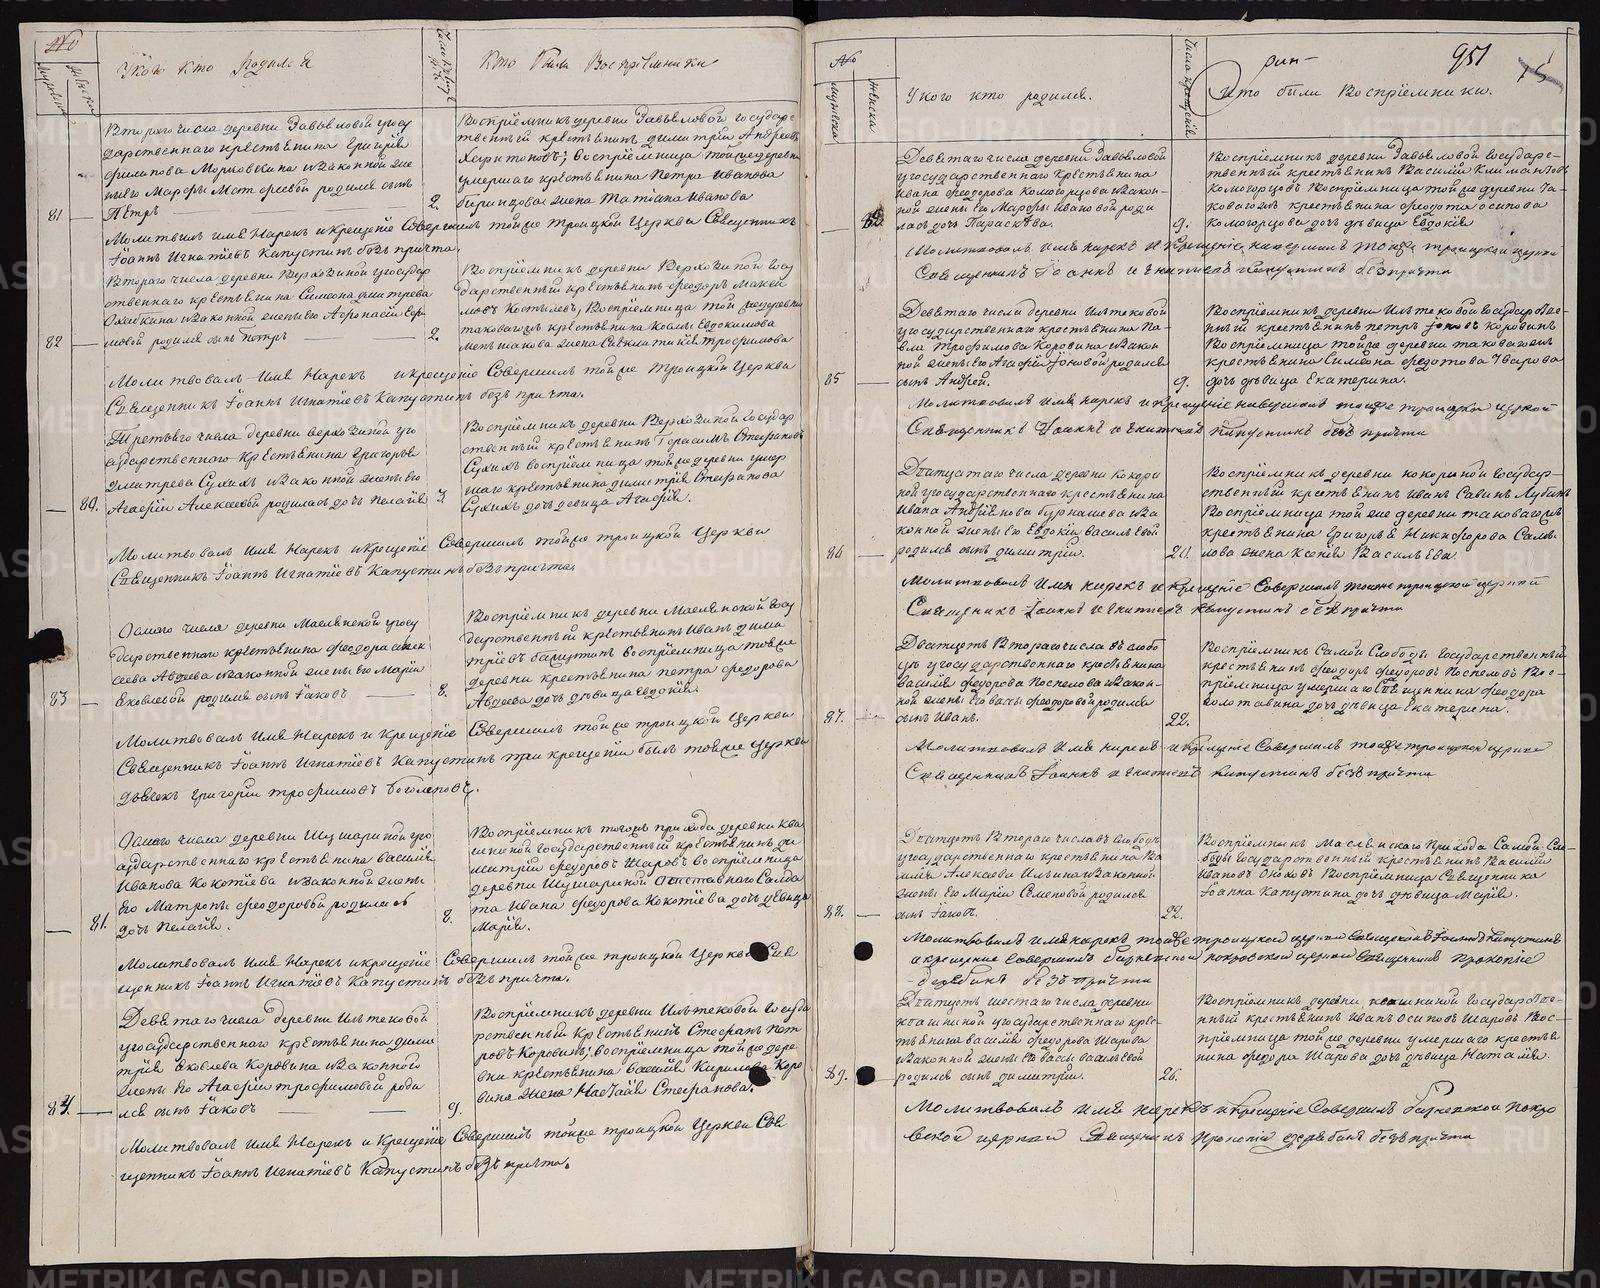 №
Мужеска
Женска
У кого кто родился
Кто были Восприемники
Втораго числа деревни Завьяловой у госу
дарственнаго крестьянина Григорія
Филипова законной же
ны его Марфы Матфеевой родился сынъ
81 Петръ 2.
Восприемникъ деревни Завьяловой государс
твенный крестьянинъ Димитрій Андреевъ
Харитоновъ; восприемница той же деревни
умершаго крестьянина Петра Иванова
жена Татіана Иванова
Молитвилъ имя Нарекъ и крещеніе Совершилъ той же троицкой Церкви Священникъ
Іоаннъ Игнатіевъ Капустинъ безъ причта.
Втораго числа деревни Верхозиной у государ
ственнаго крестьянина Симеона Дмитрева
законной жены его Афонасіи
82 родился сынъ Петръ 2.
Восприемникъ деревни Верхозиной госу
дарственный крестьянинъ Феодоръ Макси
мовъ Костылевъ, Восприемница той же деревни
таковагожъ крестьянина Козмы Евдокимова
Меншакова жена Синклитикія Трофимова
Молитвовалъ Имя Нарекъ и крещеніе Совершилъ той же троицкой Церкви
Священникъ Іоаннъ Игнатіевъ Капустинъ безъ причта.
Третьяго числа деревни Верхозиной у го
сударственнаго крестьянина Григорья
Дмитрева Сухихъ законной жены его
80. Агафіи Алексеевой родилась дочь Пелагія 3.
Восприемникъ деревни Верхозиной государ
ственный крестьянинъ Герасимъ Стефановъ
Сухихъ восприемница той же деревни умер
шаго крестьянина Димитрія Стефанова
Сухихъ дочь девица Агафія.
Молитвовалъ имя Нарекъ и крещеніе Совершилъ той же троицкой Церкви
Священникъ Іоаннъ Игнатіевъ Капустинъ безъ причта.
Осмаго числа деревни Маслянской у госу
дарственнаго крестьянина Феодора Алек
сеева Авдеева законной жены его Маріи
83 Яковлевой родился сынъ Іаковъ 8.
Восприемникъ деревни Маслянской госу
дарственный крестьянинъ Иванъ Дими
тріевъ восприемница той же
деревни крестьянина Петра Федорова
Авдеева дочь девица Евдокія.
Молитвовалъ Имя Нарекъ и крещеніе Совершилъ той же троицкой Церкви
Священникъ Іоаннъ Игнатіевъ Капустинъ при крещеніи былъ той же Церкви
дьячекъ Григорій Трофимовъ Боголеповъ.
Осмаго числа деревни Шушариной у го
сударственнаго крестьянина Василія
Иванова Кокотѣева законной жены
его Матроны Феодоровой родилась
81. дочь Пелагія. 8.
Восприемникъ тогожъ прихода деревни Ква
шниной государственный крестьянинъ Ди
митрій Федоровъ Шаровъ восприемница
деревни Шушариной Отставнаго Солда
та Ивана Федорова Кокотѣева дочь девица
Марія.
Молитвовалъ имя Нарекъ и крещеніе Совершилъ той же троицкой Церкви Свя
щенникъ Іоаннъ Игнатіевъ Капустинъ безъ причта.
Девятаго числа деревни Ильтековой
у государственнаго крестьянина Дими
трія Яковлева Коровина законной
жены его Агафіи Трофимовой роди
84. лся сынъ Іаковъ 9.
Восприемникъ деревни Ильтековой госуда
рственный крестьянинъ Стефанъ Пет
ровъ Коровинъ; восприемница той же дере
вни крестьянина Василія Кирилова Коро
вина жена Стефанова.
Молитвовалъ имя Нарекъ и крещеніе Совершилъ той же троицкой Церкви Свя
щенникъ Іоаннъ Игнатіевъ Капустинъ безъ причта.
951
рин-
№
Мужеска
Женска
У кого кто родился.
Кто были Восприемники.
Девятаго числа деревни Завьяловой
у государственнаго крестьянина
Ивана Феодорова Коморцова закон
ной жены его Марфы Ивановой роди
82 лась дочь Параскева. 9.
Восприемникъ деревни Завьяловой государс-
твенный крестьянинъ Василій
Коморцовъ Восприемница той же деревни та-
коваго жъ крестьянина Федота Осипова
Коморцова дочь девица Евдокія
Молитвовалъ имя нарекъ и крещеніе совершилъ тойже троицкой церкви
Священникъ Іоаннъ Игнатіевъ Капустинъ безъ причта
Девятаго числа деревни Ильтековой
у государственнаго крестьянина Па-
вла Трофимова Коровина закон
ной жены его Агафіи родился
85 сынъ Андрей. 9.
Восприемникъ деревни Ильтековой государстве-
нный крестьянинъ Петръ Коровинъ
Восприемница тойже деревни таковагожъ
крестьянина Симеона Федотова Уварова
дочь девица Екатерина.
Молитвовалъ имя нарекъ и крещеніе совершилъ тойже троицкой церкви
Священникъ Іоаннъ Игнатіевъ Капустинъ безъ причта
Дватцатаго числа деревни Кокори
ной у государственнаго крестьянина
Ивана Андреянова Бурнашева за
конной жены его Евдокіи Васильевой
86 родился сынъ Димитрій. 20.
Восприемникъ деревни Кокориной государ-
ственный крестьянинъ Иванъ Савинъ
Восприемница той же деревни таковагожъ
крестьянина Григорья Никифорова
жена Ксенія Васильева
Молитвовалъ имя нарекъ и крещеніе Совершилъ тойже троицкой церкви
Священникъ Іоаннъ Игнатіевъ Капустинъ безъ причта
Дватцать Втораго числа въ слобо
де у государственнаго крестьянина
Василія Федорова Поспелова закон-
ной жены его Вассы Феодоровой родился
87. сынъ Иванъ. 22.
Восприемникъ Самой Слободы государственный
крестьянинъ Феодоръ Федоровъ Поспеловъ Вос-
приемница умершаго Священника Феодора
дочь девица Екатерина.
Молитвовалъ имя нарекъ и крещеніе Совершилъ тойже троицкой церкви
Священникъ Іоаннъ Игнатіевъ Капустинъ безъ причта
Дватцать Втораго числа въ слободе
у государственнаго крестьянина Ва
силія Алексеева Ильина законной
жены его Маріи Семеновой родился
88. сынъ Іаковъ. 22.
Восприемникъ Маслянскаго Прихода Самой Сло-
боды государственный крестьянинъ Василій
Ивановъ Восприемница Священника
Іоанна Капустина дочь девица Марія.
Молитвовалъ имя нарекъ тойже троицкой церкви Священникъ Іоаннъ Капустинъ
а крещеніе Совершилъ покровской церкви Священникъ Прокопіе
безъ причта
Дватцать шестаго числа деревни
Квашниной у государственнаго крес-
тьянина Василія Федорова Шарова
законной жены его Вассы Васильевой
89. родился сынъ Димитрій. 26.
Восприемникъ деревни Квашниной государстве-
нный крестьянинъ Иванъ Осиповъ Шаровъ Вос-
приемница той же деревни умершаго крестья
нина Федора Шарова дочь девица Наталія.
Молитвовалъ имя нарекъ и крещеніе Совершилъ покро
вской церкви Священникъ Прокопій безъ причта
METRIKI.GASO-URAL.RU